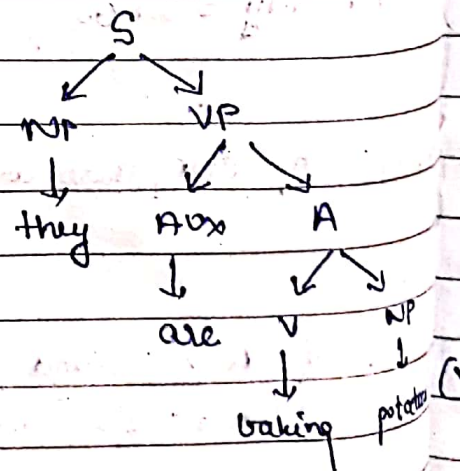 S
NP VP
they Aux A
are V NP
baking potatoes